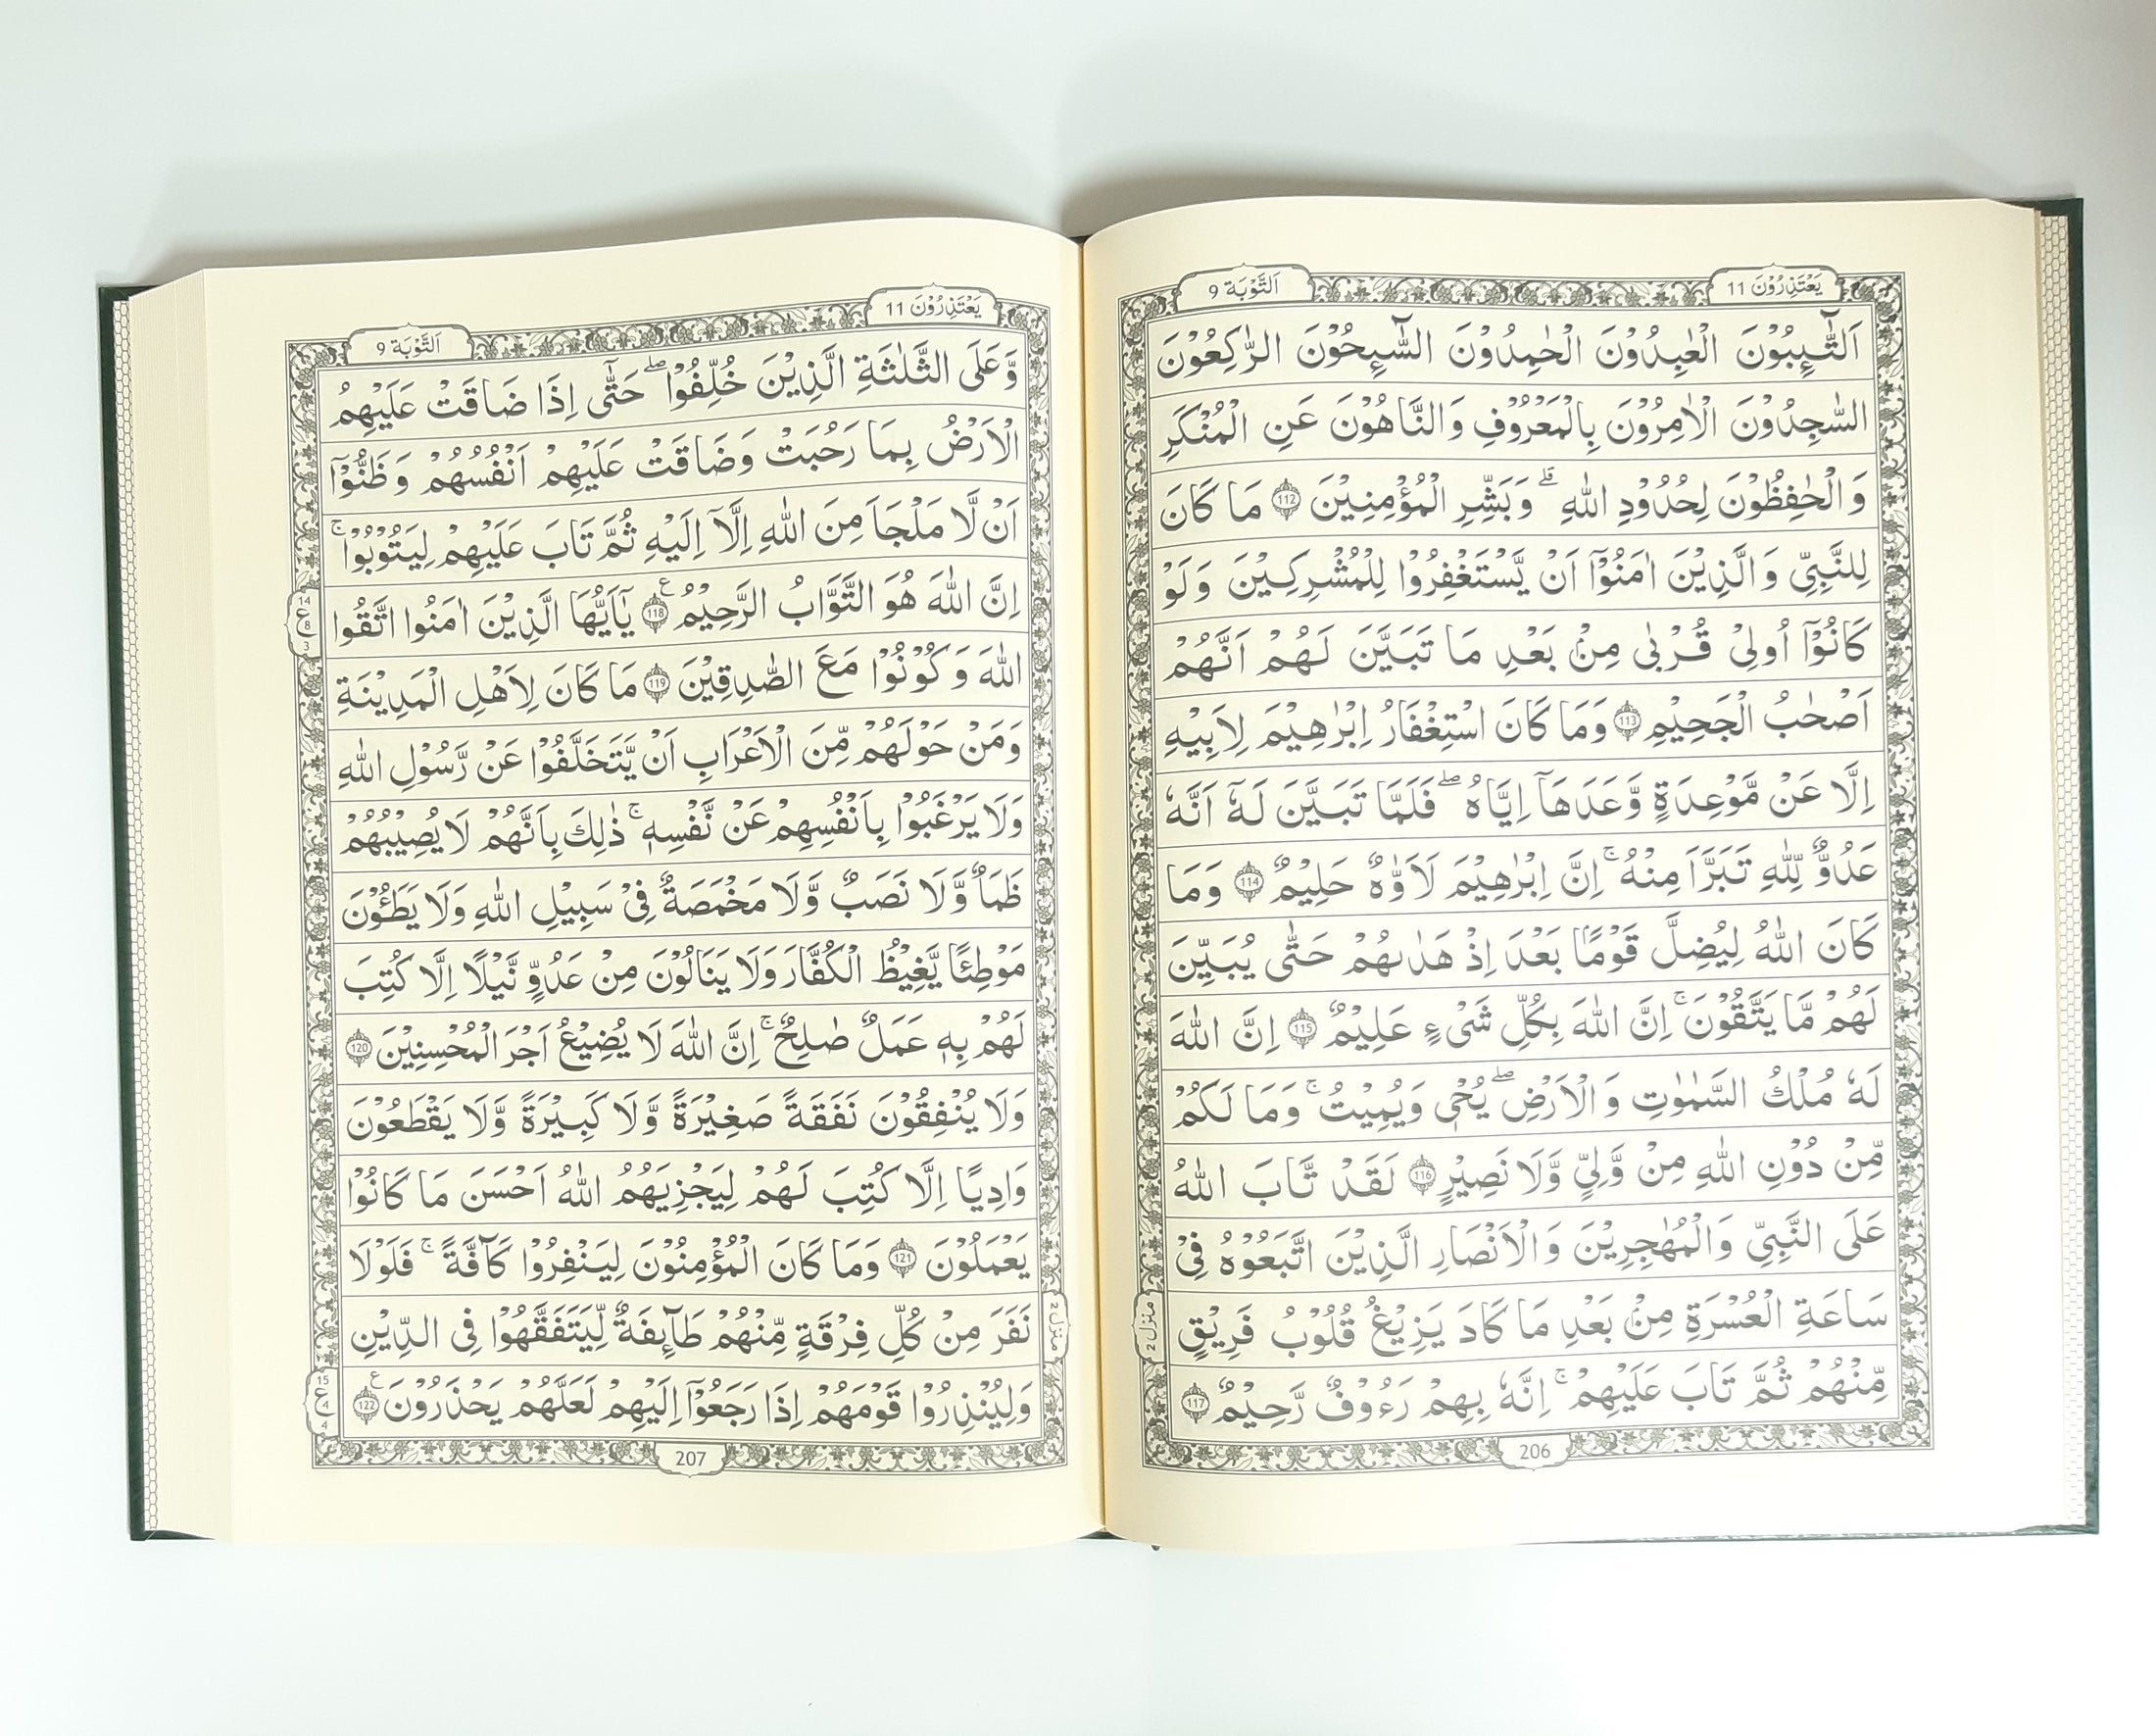 يَعْتَذِرُوْنَ 11
اَلتَّوْبَة 9
اَلتَّآئِبُوْنَ الْعٰبِدُوْنَ الْحٰمِدُوْنَ السَّآئِحُوْنَ الرّٰكِعُوْنَ
السّٰجِدُوْنَ الْاٰمِرُوْنَ بِالْمَعْرُوْفِ وَالنَّاهُوْنَ عَنِ الْمُنْكَرِ
وَالْحٰفِظُوْنَ لِحُدُوْدِ اللّٰهِ ؕ وَبَشِّرِ الْمُؤْمِنِيْنَ 112 مَا كَانَ
لِلنَّبِيِّ وَالَّذِيْنَ اٰمَنُوْۤا اَنْ يَّسْتَغْفِرُوْا لِلْمُشْرِكِيْنَ وَلَوْ
كَانُوْۤا اُولِيْ قُرْبٰى مِنْۢ بَعْدِ مَا تَبَيَّنَ لَهُمْ اَنَّهُمْ
اَصْحٰبُ الْجَحِيْمِ 113 وَمَا كَانَ اسْتِغْفَارُ اِبْرٰهِيْمَ لِاَبِيْهِ
اِلَّا عَنْ مَّوْعِدَةٍ وَّعَدَهَاۤ اِيَّاهُ ۖ فَلَمَّا تَبَيَّنَ لَهٗۤ اَنَّهٗ
عَدُوٌّ لِّلّٰهِ تَبَرَّاَ مِنْهُ ۚ اِنَّ اِبْرٰهِيْمَ لَاَوَّاهٌ حَلِيْمٌ 114 وَمَا
كَانَ اللّٰهُ لِيُضِلَّ قَوْمًاۢ بَعْدَ اِذْ هَدٰىهُمْ حَتّٰى يُبَيِّنَ
لَهُمْ مَّا يَتَّقُوْنَ ۚ اِنَّ اللّٰهَ بِكُلِّ شَيْءٍ عَلِيْمٌ 115 اِنَّ اللّٰهَ
لَهٗ مُلْكُ السَّمٰوٰتِ وَالْاَرْضِ ۖ يُحْيٖ وَيُمِيْتُ ۚ وَمَا لَكُمْ
مِّنْ دُوْنِ اللّٰهِ مِنْ وَّلِيٍّ وَّلَا نَصِيْرٍ 116 لَقَدْ تَّابَ اللّٰهُ
عَلَى النَّبِيِّ وَالْمُهٰجِرِيْنَ وَالْاَنْصَارِ الَّذِيْنَ اتَّبَعُوْهُ فِيْ
سَاعَةِ الْعُسْرَةِ مِنْۢ بَعْدِ مَا كَادَ يَزِيْغُ قُلُوْبُ فَرِيْقٍ
مِّنْهُمْ ثُمَّ تَابَ عَلَيْهِمْ ۚ اِنَّهٗ بِهِمْ رَءُوْفٌ رَّحِيْمٌ 117
منزل 2
206
يَعْتَذِرُوْنَ 11
اَلتَّوْبَة 9
وَّعَلَى الثَّلٰثَةِ الَّذِيْنَ خُلِّفُوْا ۖ حَتّٰۤى اِذَا ضَاقَتْ عَلَيْهِمُ
الْاَرْضُ بِمَا رَحُبَتْ وَضَاقَتْ عَلَيْهِمْ اَنْفُسُهُمْ وَظَنُّوْۤا
اَنْ لَّا مَلْجَاَ مِنَ اللّٰهِ اِلَّاۤ اِلَيْهِ ثُمَّ تَابَ عَلَيْهِمْ لِيَتُوْبُوْا ۚ
اِنَّ اللّٰهَ هُوَ التَّوَّابُ الرَّحِيْمُ 118 ع يٰۤاَيُّهَا الَّذِيْنَ اٰمَنُوا اتَّقُوا
اللّٰهَ وَكُوْنُوْا مَعَ الصّٰدِقِيْنَ 119 مَا كَانَ لِاَهْلِ الْمَدِيْنَةِ
وَمَنْ حَوْلَهُمْ مِّنَ الْاَعْرَابِ اَنْ يَّتَخَلَّفُوْا عَنْ رَّسُوْلِ اللّٰهِ
وَلَا يَرْغَبُوْا بِاَنْفُسِهِمْ عَنْ نَّفْسِهٖ ۚ ذٰلِكَ بِاَنَّهُمْ لَا يُصِيْبُهُمْ
ظَمَاٌ وَّلَا نَصَبٌ وَّلَا مَخْمَصَةٌ فِيْ سَبِيْلِ اللّٰهِ وَلَا يَطَـُٔوْنَ
مَوْطِئًا يَّغِيْظُ الْكُفَّارَ وَلَا يَنَالُوْنَ مِنْ عَدُوٍّ نَّيْلًا اِلَّا كُتِبَ
لَهُمْ بِهٖ عَمَلٌ صٰلِحٌ ۚ اِنَّ اللّٰهَ لَا يُضِيْعُ اَجْرَ الْمُحْسِنِيْنَ 120
وَلَا يُنْفِقُوْنَ نَفَقَةً صَغِيْرَةً وَّلَا كَبِيْرَةً وَّلَا يَقْطَعُوْنَ
وَادِيًا اِلَّا كُتِبَ لَهُمْ لِيَجْزِيَهُمُ اللّٰهُ اَحْسَنَ مَا كَانُوْا
يَعْمَلُوْنَ 121 وَمَا كَانَ الْمُؤْمِنُوْنَ لِيَنْفِرُوْا كَآفَّةً ۚ فَلَوْلَا
نَفَرَ مِنْ كُلِّ فِرْقَةٍ مِّنْهُمْ طَآئِفَةٌ لِّيَتَفَقَّهُوْا فِى الدِّيْنِ
وَلِيُنْذِرُوْا قَوْمَهُمْ اِذَا رَجَعُوْۤا اِلَيْهِمْ لَعَلَّهُمْ يَحْذَرُوْنَ 122 ع
14
ع
8
3
15
ع
4
4
منزل 2
207